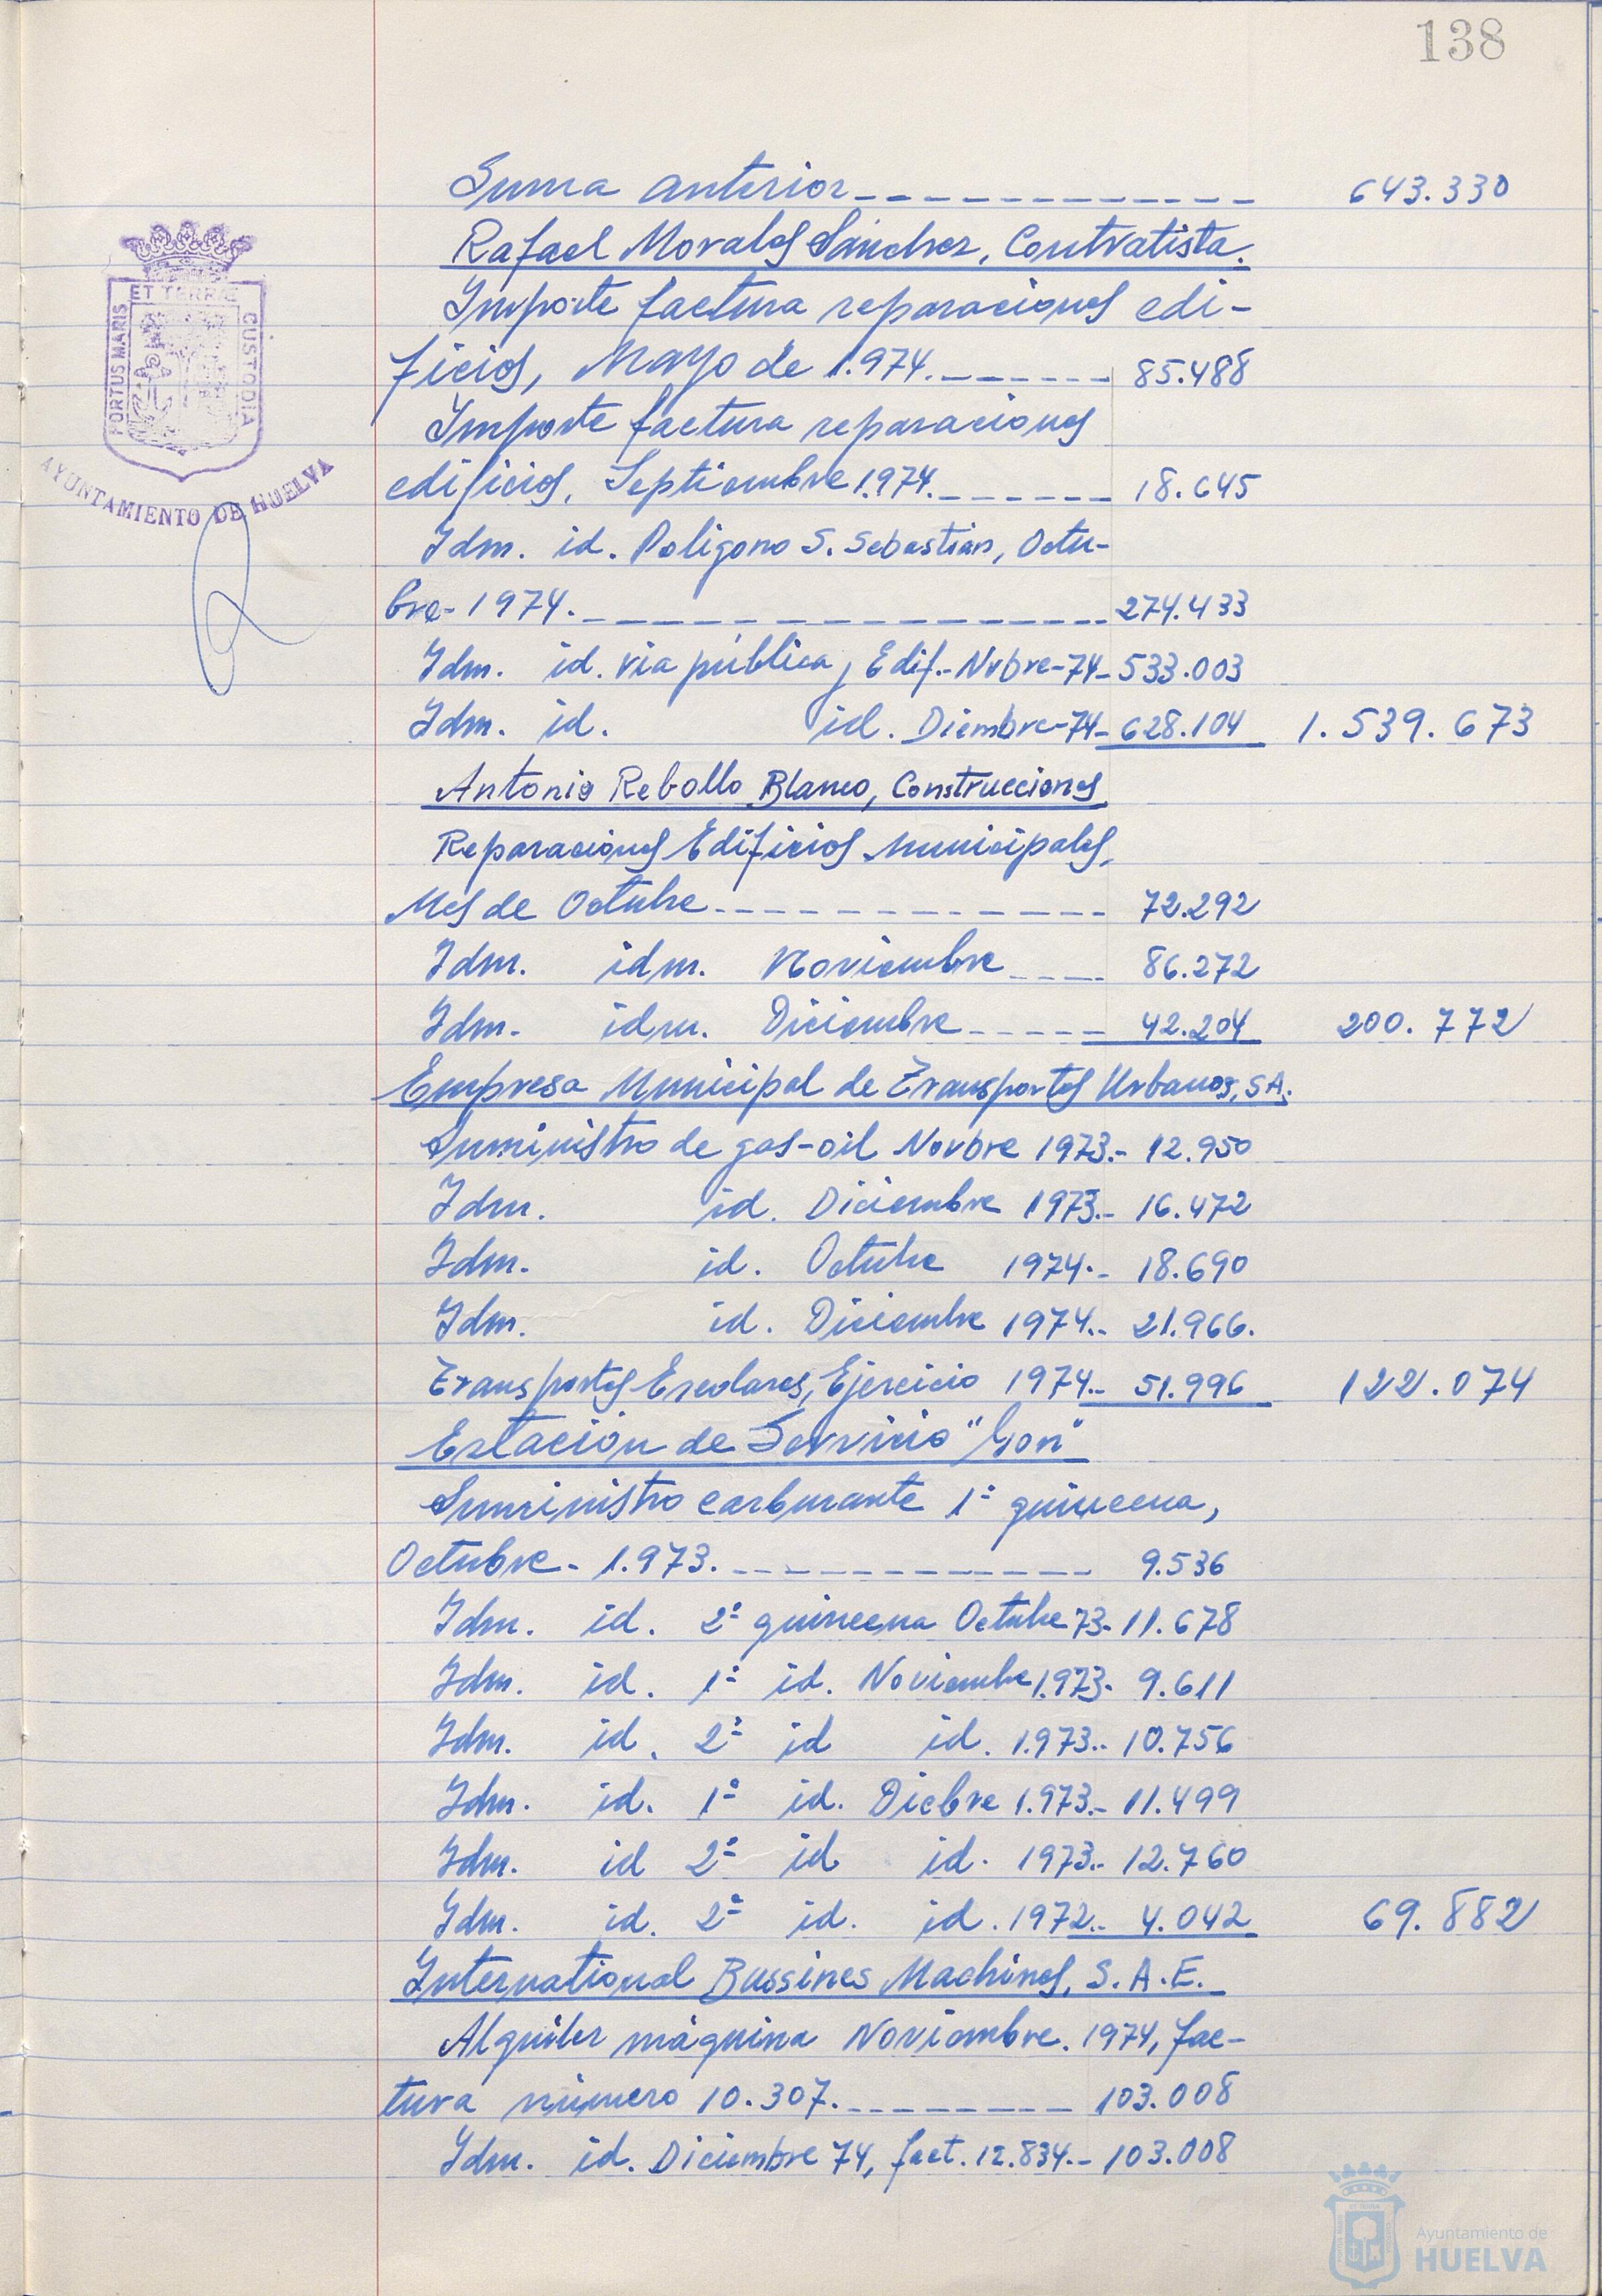 138
Suma anterior ------------ 643.330
Rafael Morales Sánchez, Contratista.
Importe factura reparaciones edi-
ficios, Mayo de 1.974.------ 85.488
Importe factura reparaciones
edificios, Septiembre 1.974.------ 18.645
Idm. id. Poligono S. Sebastián, Octu-
bre-1974.------------------ 274.433
Idm. id. via pública y Edif.- Nvbre-74- 533.003
Idm. id. id. Diembre-74- 628.104 1.539.673
Antonio Rebollo Blanco, Construcciones
Reparaciones Edificios Municipales,
Mes de Octubre------------ 72.292
Idm. idm. Noviembre---- 86.272
Idm. idm. Diciembre----- 42.204 200.772
Empresa Municipal de Transportes Urbanos, SA.
Suministro de gas-oil Novbre 1973.- 12.950
Idm. id. Diciembre 1973.- 16.472
Idm. id. Octubre 1974.- 18.690
Idm. id. Diciembre 1974.- 21.966.
Transportes Escolares, Ejercicio 1974.- 51.996 122.074
Estación de Servicio "Gon"
Suministro carburante 1ª quincena,
Octubre- 1.973.------------ 9.536
Idm. id. 2ª quincena Octubre 73- 11.678
Idm. id. 1ª id. Noviembre 1.973- 9.611
Idm. id. 2ª id id. 1.973.- 10.756
Idm. id. 1ª id. Dicbre 1.973.- 11.499
Idm. id 2ª id id. 1973.- 12.760
Idm. id. 2ª id. id. 1972.- 4.042 69.882
International Bussines Machines, S.A.E.
Alquiler máquina Noviembre. 1974, fac-
tura número 10.307.-------- 103.008
Idm. id. Diciembre 74, fact. 12.834.- 103.008
PORTUS MARIS
ET TERRÆ
CUSTODIA
AYUNTAMIENTO DE HUELVA
Ayuntamiento de
HUELVA